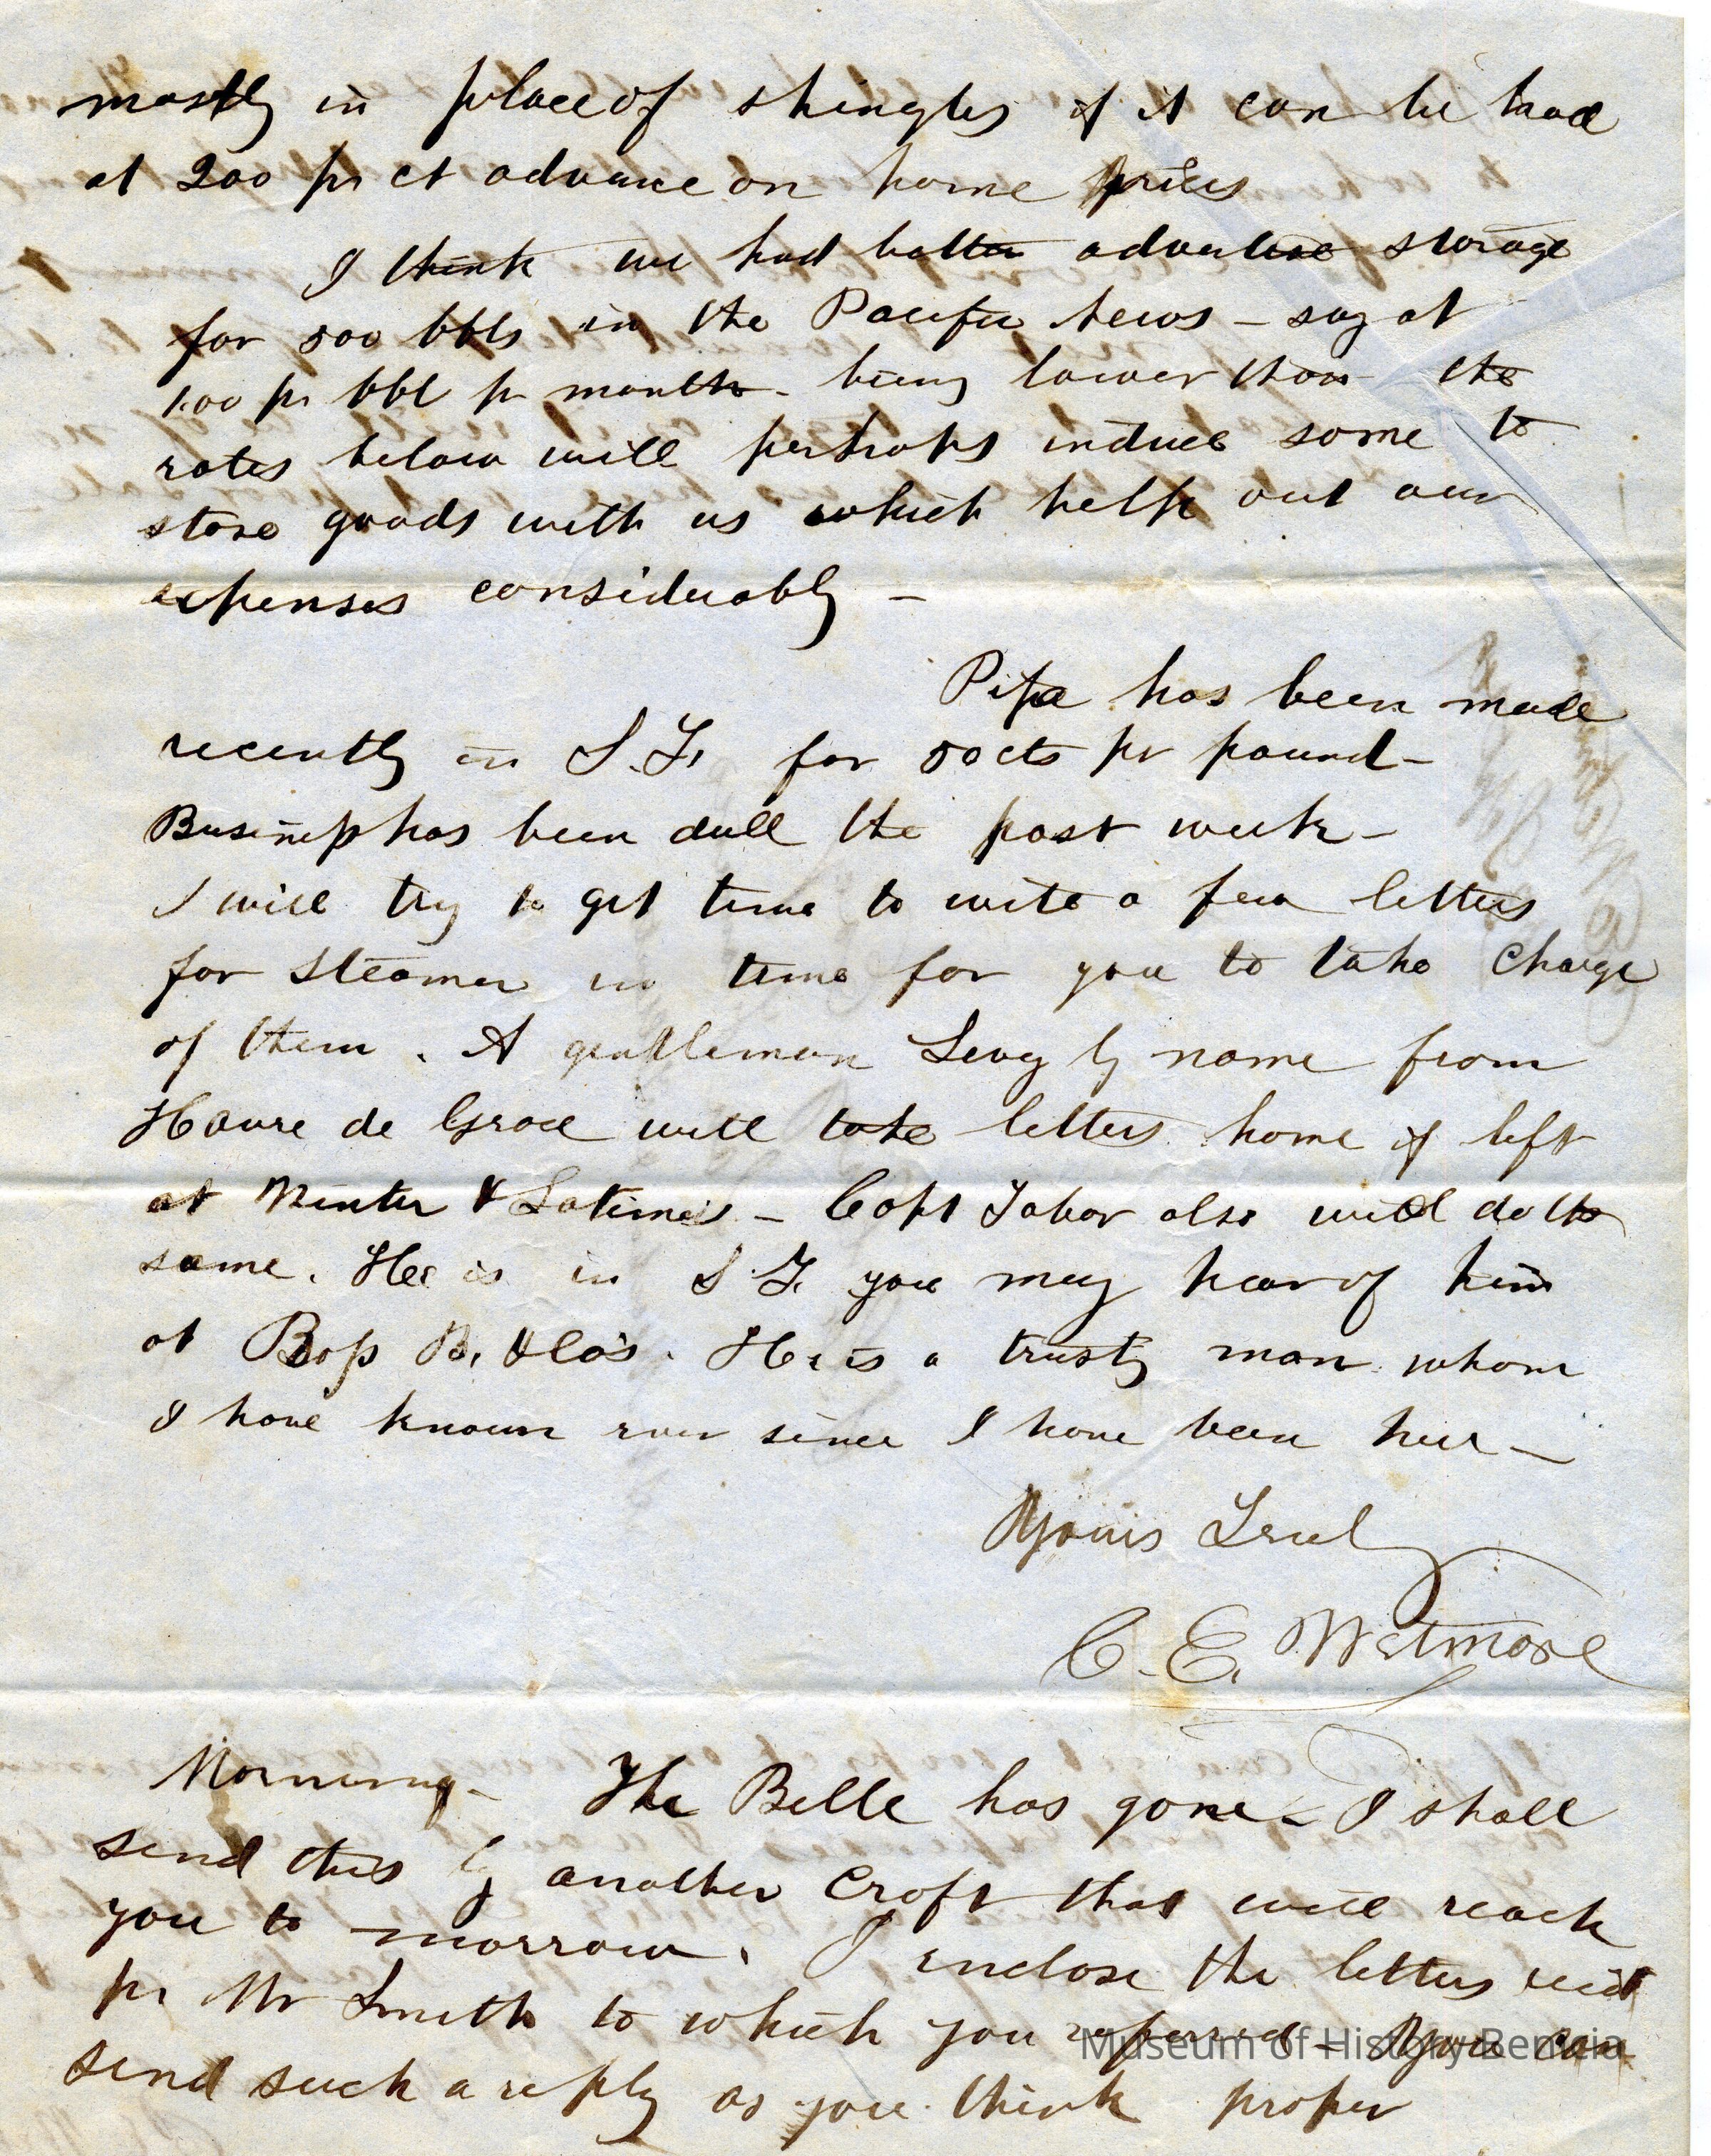 mostly in place of shingles if it can be had
at 200 pr ct advance on home prices
I think we had better advertise storage
for 500 bbls in the Pacific News - say at
1.00 pr bbl pr month - being lower than the
rates below will perhaps induce some to
store goods with us which help out our
expenses considerably -
Pipe has been made
recently in S.F. for 50 cts pr pound -
Business has been dull the past week -
I will try to get time to write a few letters
for steamer in time for you to take charge
of them. A gentleman Levy by name from
Havre de Grace will take letters home if left
at Minter & Latimer's - Capt Tabor also will do the
same. He is in S.F. you may hear of him
at Boss B. & Co's. He is a trusty man whom
I have known ever since I have been here -
Yours Truly
C. E. Wetmore
Morning - The Belle has gone - I shall
send this by another Craft that will reach
you to morrow. I enclose the letters recd
pr Mr Smith to which you referred - You can
send such a reply as you think proper
Museum of History Benicia